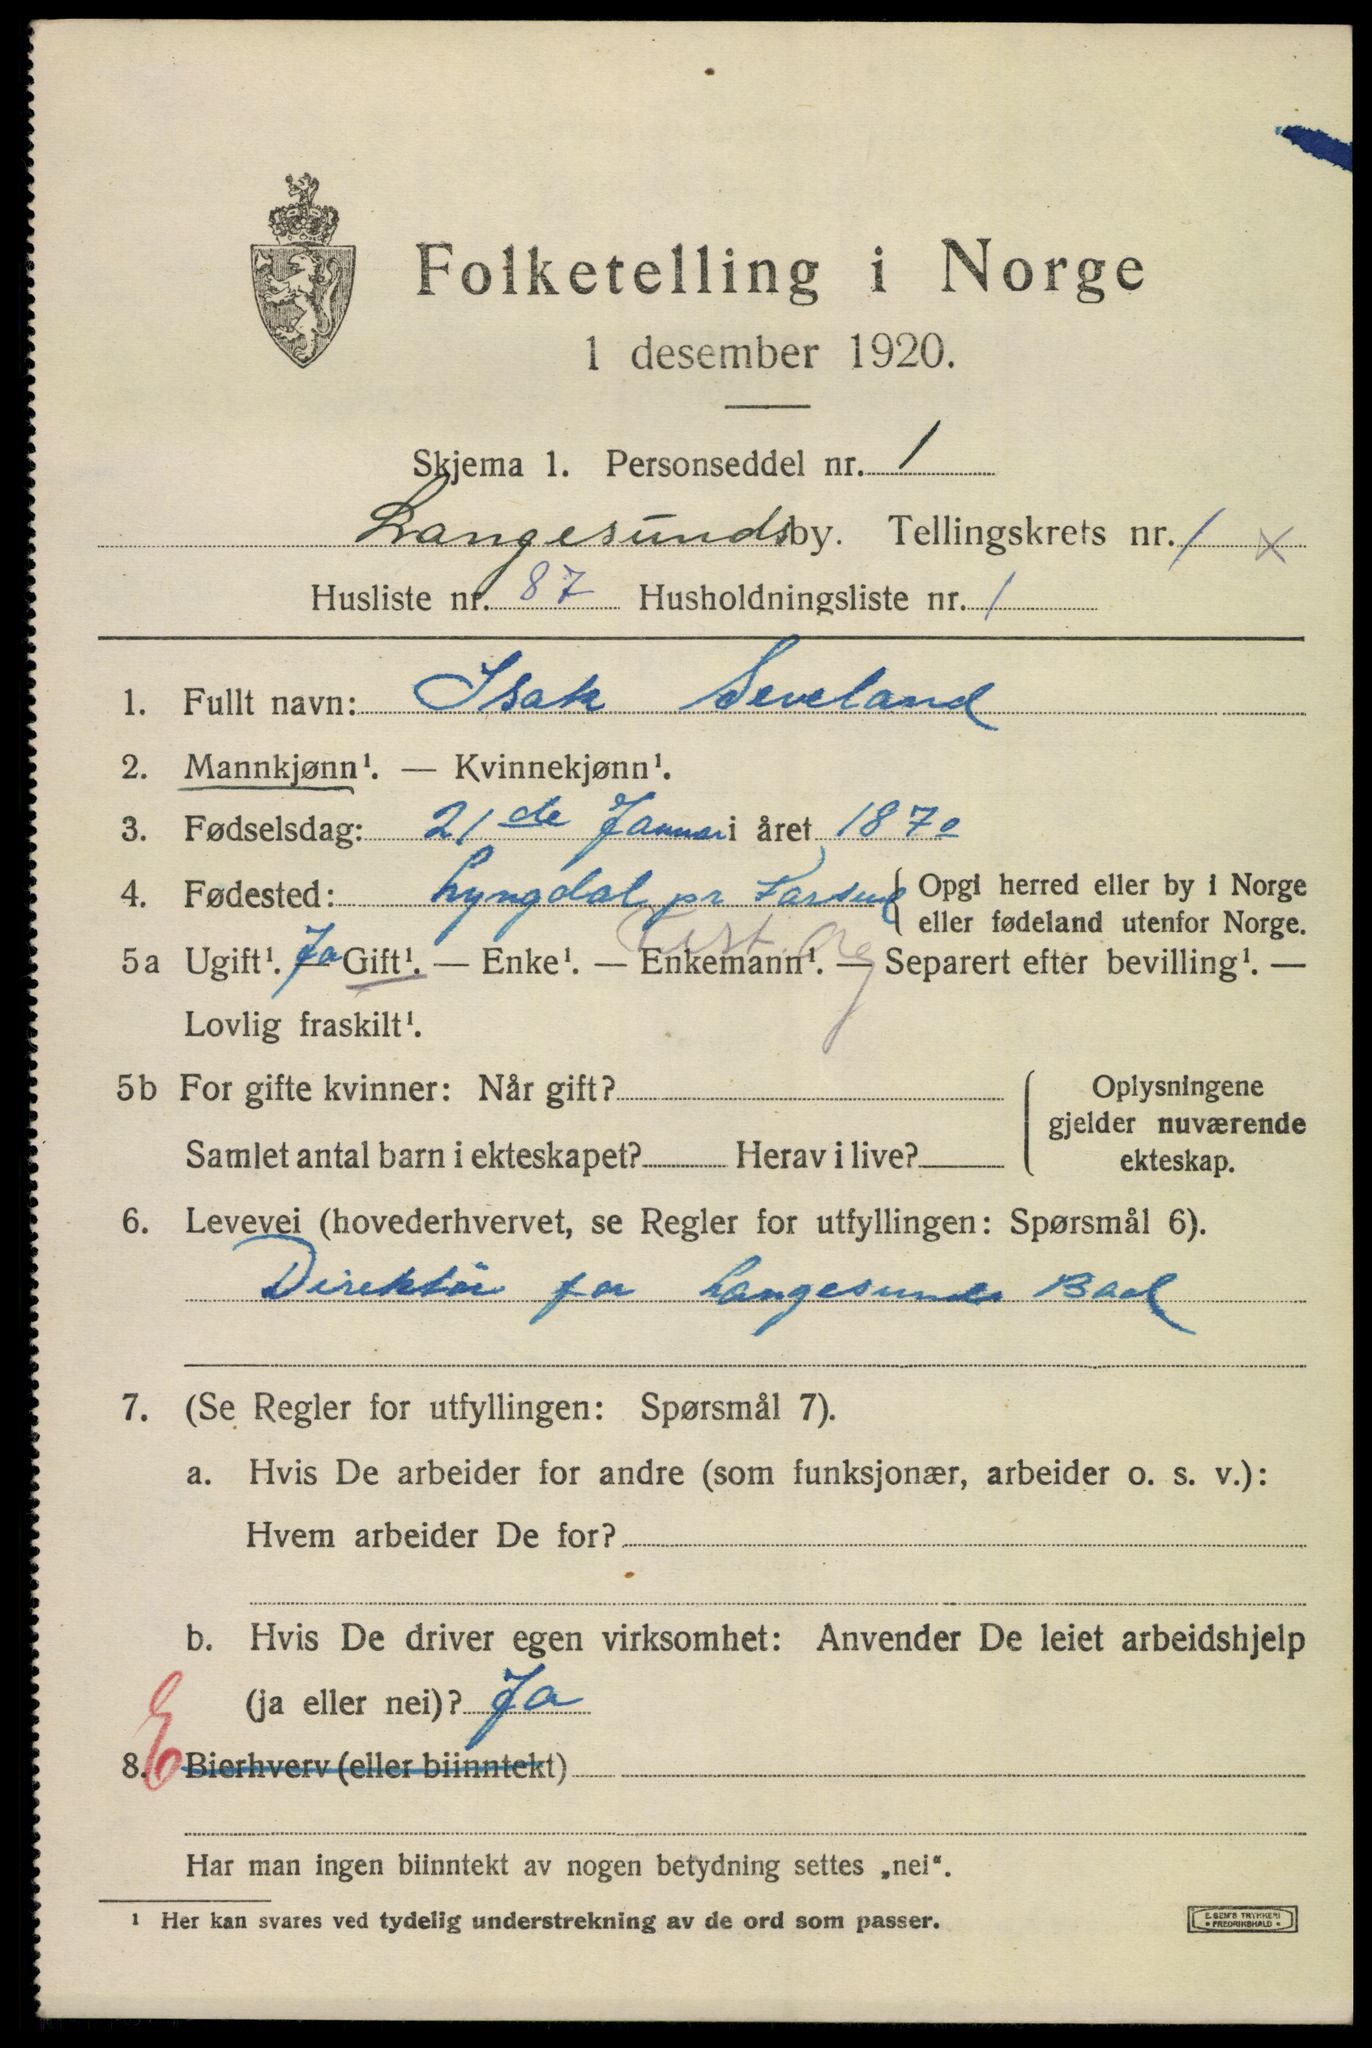 Folketelling i Norge
1 desember 1920.
Skjema 1. Personseddel nr. 1
Langesunds by. Tellingskrets nr. 1 x
Husliste nr. 87 Husholdningsliste nr. 1
1. Fullt navn: Isak Seveland
2. Mannkjønn¹. — Kvinnekjønn¹.
3. Fødselsdag: 21de Januar i året 1870
4. Fødested: Lyngdal pr Farsund { Opgi herred eller by i Norge
eller fødeland utenfor Norge.
5a Ugift¹. Ja Gift¹. — Enke¹. — Enkemann¹. — Separert efter bevilling¹. —
Lovlig fraskilt¹.
5b For gifte kvinner: Når gift? { Oplysningene
gjelder nuværende
Samlet antal barn i ekteskapet? Herav i live? ekteskap.
6. Levevei (hovederhvervet, se Regler for utfyllingen: Spørsmål 6).
Direktør for Langesunds Bad
7. (Se Regler for utfyllingen: Spørsmål 7).
a. Hvis De arbeider for andre (som funksjonær, arbeider o. s. v.):
Hvem arbeider De for?
b. Hvis De driver egen virksomhet: Anvender De leiet arbeidshjelp
(ja eller nei)? Ja
8. E Bierhverv (eller biinntekt)
Har man ingen biinntekt av nogen betydning settes „nei“.
¹ Her kan svares ved tydelig understrekning av de ord som passer.
E. SEM'S TRYKKERI
• FREDRIKSHALD •